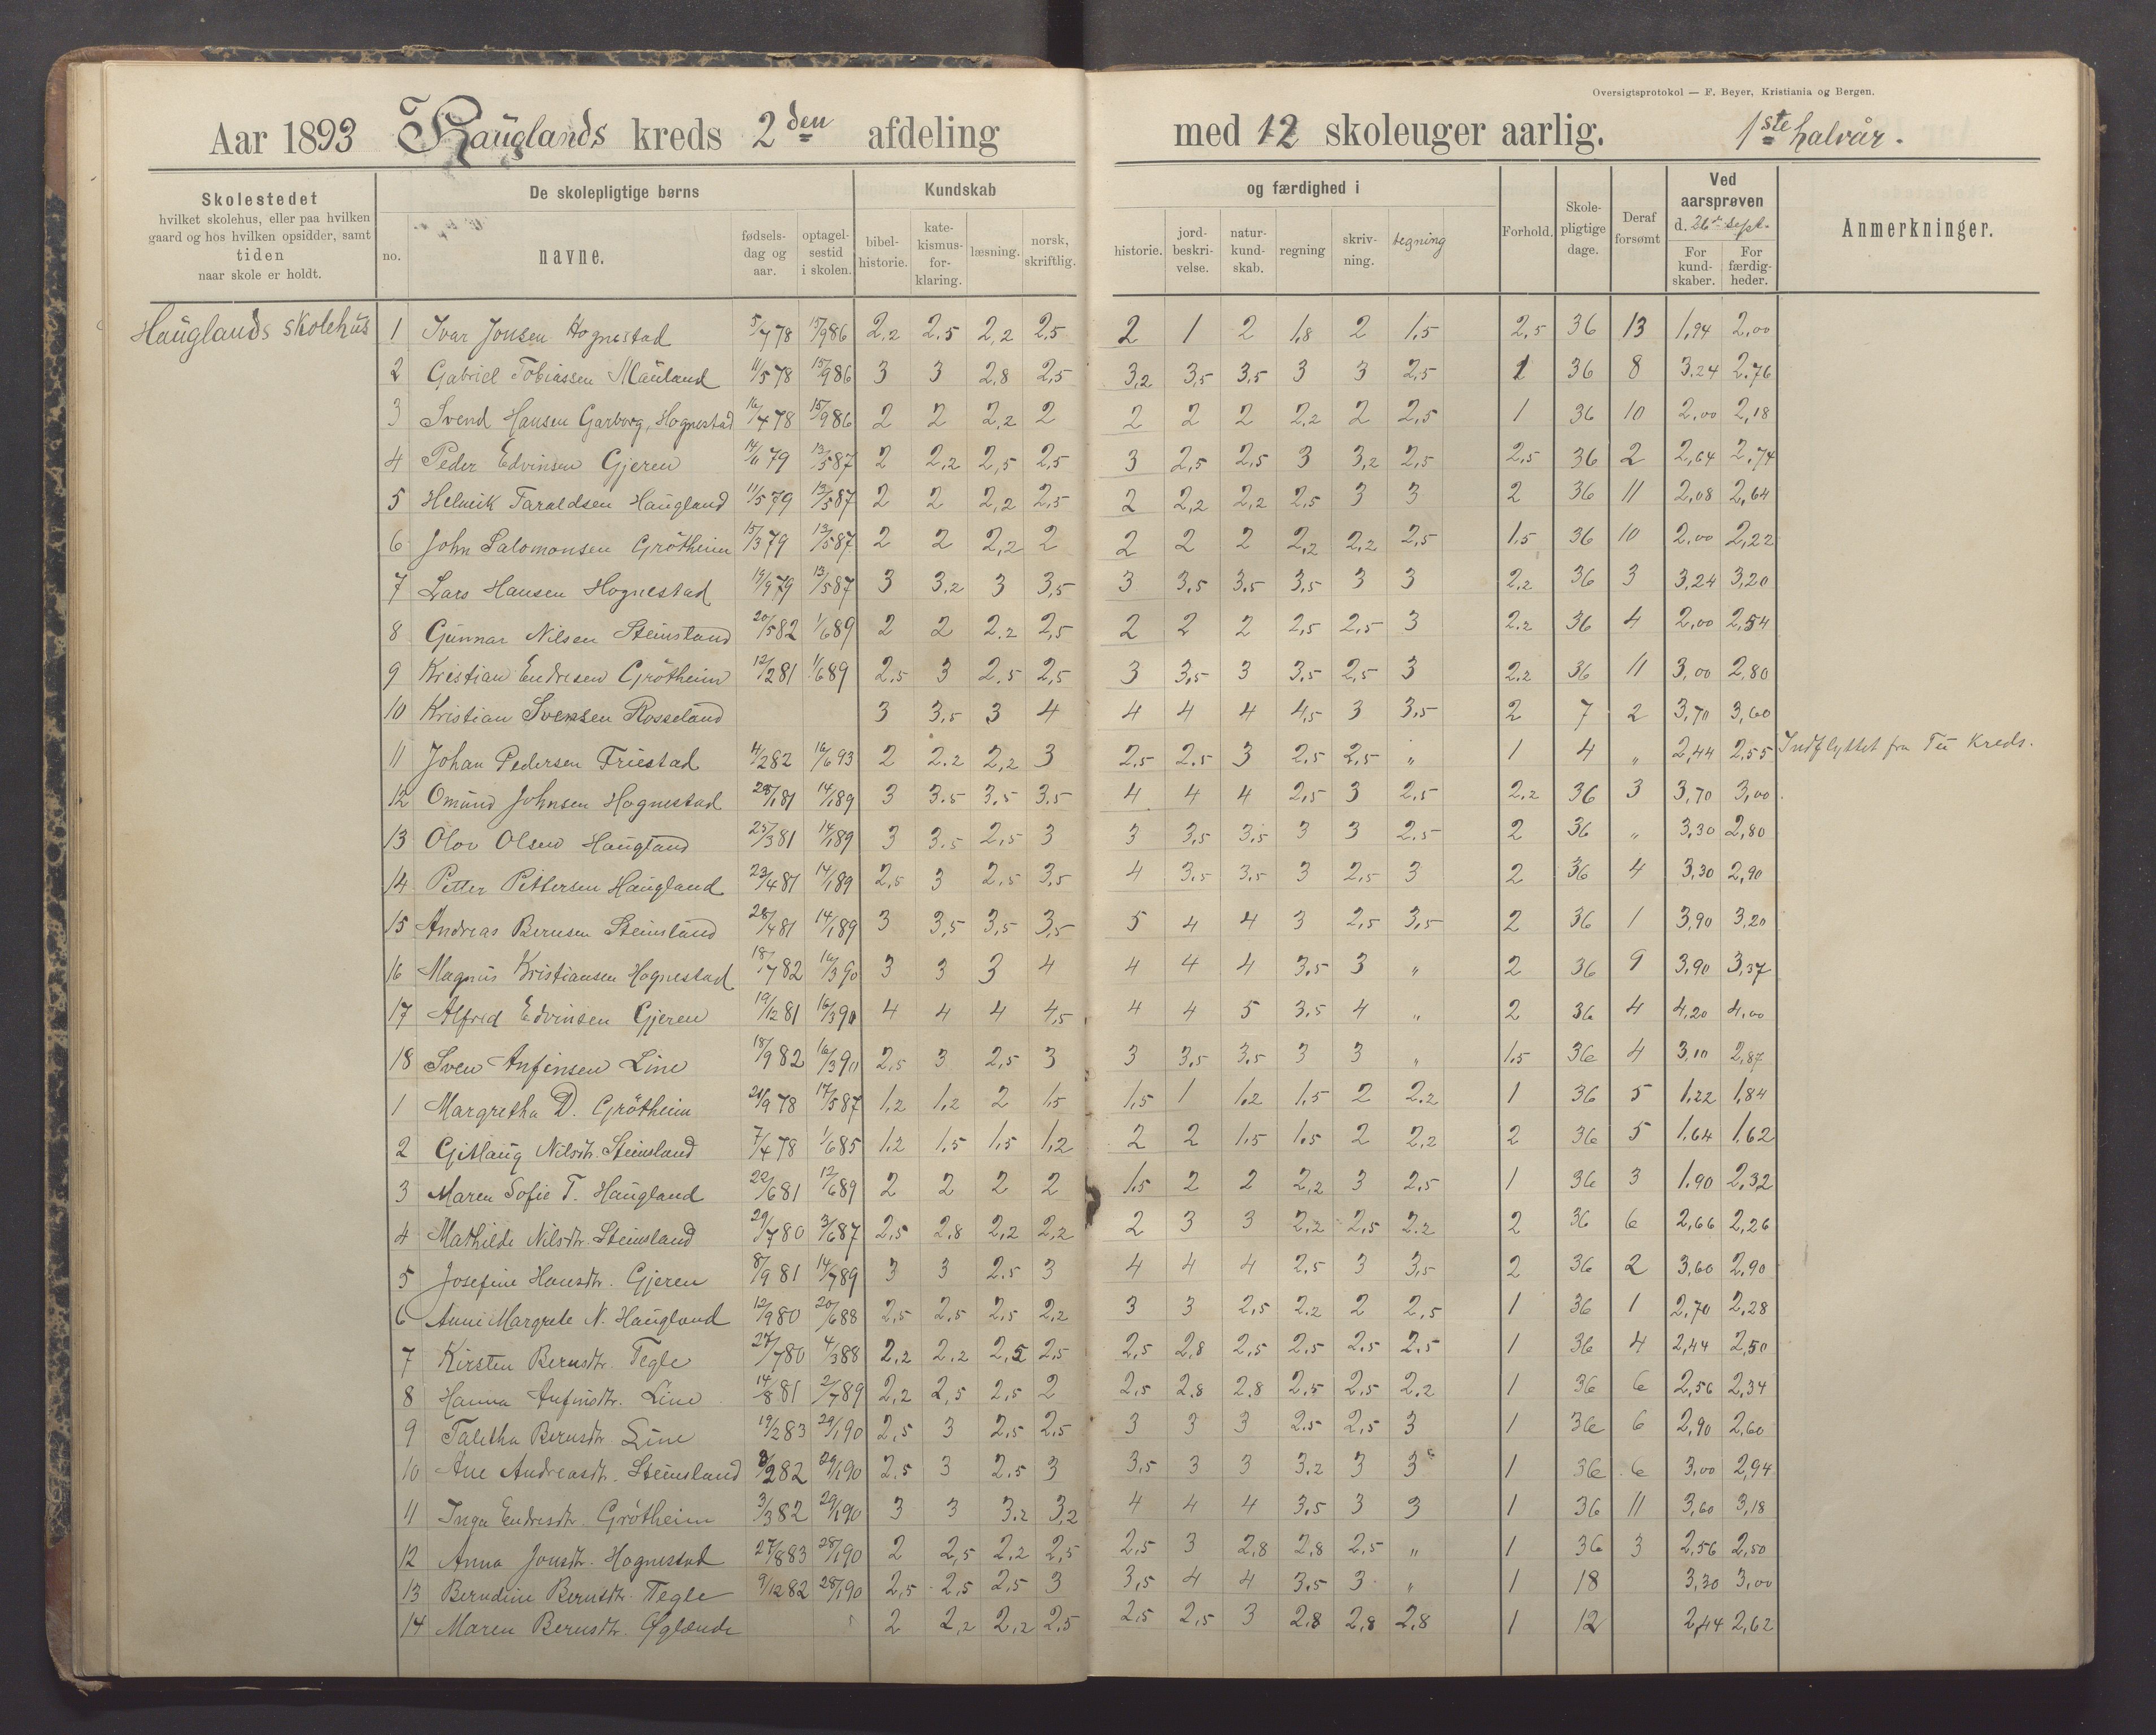 Oversigtsprotokol — F. Beyer, Kristiania og Bergen.
Aar 1893 Hauglands kreds 2den afdeling med 12 skoleuger aarlig. 1ste halvår.
Skolestedet
hvilket skolehus, eller paa hvilken
gaard og hos hvilken opsidder, samt
tiden
naar skole er holdt.
De skolepligtige børns
no. navne. fødsels-dag og aar. optagel-sestid i skolen.
Kundskab og færdighed i
bibel-historie. kate-kismus-for-klaring. læsning. norsk, skriftlig. historie. jord-beskri-velse. natur-kund-skab. regning skriv-ning. tegning
Forhold. Skole-pligtige dage. Deraf forsømt
Ved aarsprøven d. 26de Sept.
For kund-skaber. For færdig-heder.
Anmerkninger.
Hauglands skolehus
1 Ivar Jonsen Hognestad 5/7 78 15/9 86 2,2 2,5 2,2 2,5 2 1 2 1,8 2 1,5 2,5 36 13 1,94 2,00
2 Gabriel Tobiassen Mauland 11/5 78 15/9 86 3 3 2,8 2,5 3,2 3,5 3,5 3 3 2,5 1 36 8 3,24 2,76
3 Svend Hansen Garborg, Hognestad 16/4 78 15/9 86 2 2 2,2 2 2 2 2 2,2 2 2,5 1 36 10 2,00 2,18
4 Peder Edvinsen Gjeren 14/11 79 13/5 87 2 2,2 2,5 2,5 3 2,5 2,5 3 3,2 2,5 2,5 36 2 2,64 2,74
5 Helmik Taraldsen Haugland 11/5 79 13/5 87 2 2 2,2 2,5 2 2,2 2,2 2,5 3 3 2 36 11 2,08 2,64
6 John Salomonsen Grötheim 15/3 79 13/5 87 2 2 2,2 2 2 2 2 2,2 2,2 2,5 1,5 36 10 2,00 2,22
7 Lars Hansen Hognestad 19/9 79 13/5 87 3 3,2 3 3,5 3 3,5 3,5 3,5 3 3 2,2 36 3 3,24 3,20
8 Gunnar Nilsen Steinsland 20/5 82 1/6 89 2 2 2,2 2,5 2 2 2 2,5 2,5 3 2,2 36 4 2,00 2,54
9 Kristian Endresen Grötheim 12/2 81 1/6 89 2,5 3 2,5 2,5 3 3,5 3 3,5 2,5 3 2,2 36 11 3,00 2,80
10 Kristian Svensen Rosseland 3 3,5 3 4 4 4 4 4,5 3 3,5 2 7 2 3,70 3,60
11 Johan Pedersen Friestad 4/2 82 16/6 93 2 2,2 2,2 3 2,5 2,5 3 2,5 2,5 " 1 4 " 2,44 2,55 Indflyttet fra Tu Kreds.
12 Omund Johnsen Hognestad 28/1 81 14/1 89 3 3,5 3,5 3,5 4 4 4 2,5 3 2,5 2,2 36 3 3,70 3,00
13 Olav Olsen Haugland 25/3 81 14/1 89 3 3,5 2,5 3 3 3,5 3,5 3 3 2,5 2 36 " 3,30 2,80
14 Petter Pettersen Haugland 23/4 81 14/1 89 2,5 3 2,5 3,5 4 3,5 3,5 3 2,5 3 2 36 4 3,30 2,90
15 Andreas Bernsen Steinsland 28/4 81 14/1 89 3 3,5 3,5 3,5 5 4 4 3 2,5 3,5 2 36 1 3,90 3,20
16 Magnus Kristiansen Hognestad 18/7 82 16/3 90 3 3 3 4 4 4 4 3,5 3 " 2 36 9 3,90 3,37
17 Alfred Edvinsen Gjeren 19/12 81 16/3 90 4 4 4 4,5 4 4 5 3,5 4 " 2 36 4 4,20 4,00
18 Sven Anfinsen Line 18/9 82 16/3 90 2,5 3 2,5 3 3 3,5 3,5 3 3 " 1,5 36 4 3,10 2,87
1 Margretha D. Grötheim 28/9 78 17/5 87 1,2 1,2 2 1,5 1,5 1 1,2 1,5 2 2,2 1 36 5 1,22 1,84
2 Gitlaug Nilsdtr. Steinsland 7/4 78 1/6 85 1,2 1,5 1,5 1,2 2 2 1,5 1,5 2 2,2 2 36 5 1,64 1,62
3 Maren Sofie T. Haugland 22/6 81 12/6 89 2 2 2 2 1,5 2 2 2,2 3 2,5 1 36 3 1,90 2,32
4 Mathilde Nilsdtr. Steinsland 29/7 80 3/6 87 2,5 2,8 2,2 2,2 2 3 3 2,2 2,5 2,2 2 36 6 2,66 2,26
5 Josefine Hansdtr. Gjeren 8/9 81 14/7 89 3 3 2,5 3 4 4 4 2,5 3 3,5 2 36 2 3,60 2,90
6 Anne Margrete N. Haugland 12/9 80 20/6 88 2,5 2,5 2,5 2,2 3 3 2,5 2,2 2 2,5 1 36 1 2,70 2,28
7 Kirsten Bernsdtr. Tegle 27/7 80 4/3 88 2,2 2,2 2,5 2,5 2,5 2,8 2,5 2,5 2,5 2,5 1 36 4 2,44 2,50
8 Hanna Anfinsdtr. Line 14/8 81 2/7 89 2,2 2,5 2,5 2 2,5 2,8 2,8 2,5 2,5 2,2 1 36 6 2,56 2,34
9 Talitha Bernsdtr. Line 19/2 83 29/1 90 2,5 3 2,5 2,5 3 3 3 2,5 2,5 3 1 36 6 2,90 2,60
10 Ane Andreasdtr. Steinsland 8/2 82 29/1 90 2,5 3 2,5 3 3,5 3 3 3,2 3 3 1 36 6 3,00 2,94
11 Inga Endresdtr. Grötheim 3/3 82 29/1 90 3 3 3,2 3,2 4 4 4 3,5 3 3 1 36 11 3,60 3,18
12 Anna Jonsdtr. Hognestad 27/8 83 28/1 90 2 2,5 2,2 2,5 2,5 3 2,8 2,8 2,5 " 1 36 3 2,56 2,50
13 Berndine Bernsdtr. Tegle 9/12 82 28/1 90 2,5 2,5 2,5 3 3,5 4 4 3,5 3 " 1 18 3,30 3,00
14 Maren Bernsdtr. Øglænde 2 2,2 2,2 2,5 2,5 2,5 3 2,8 2,8 2,8 1 12 2,44 2,62